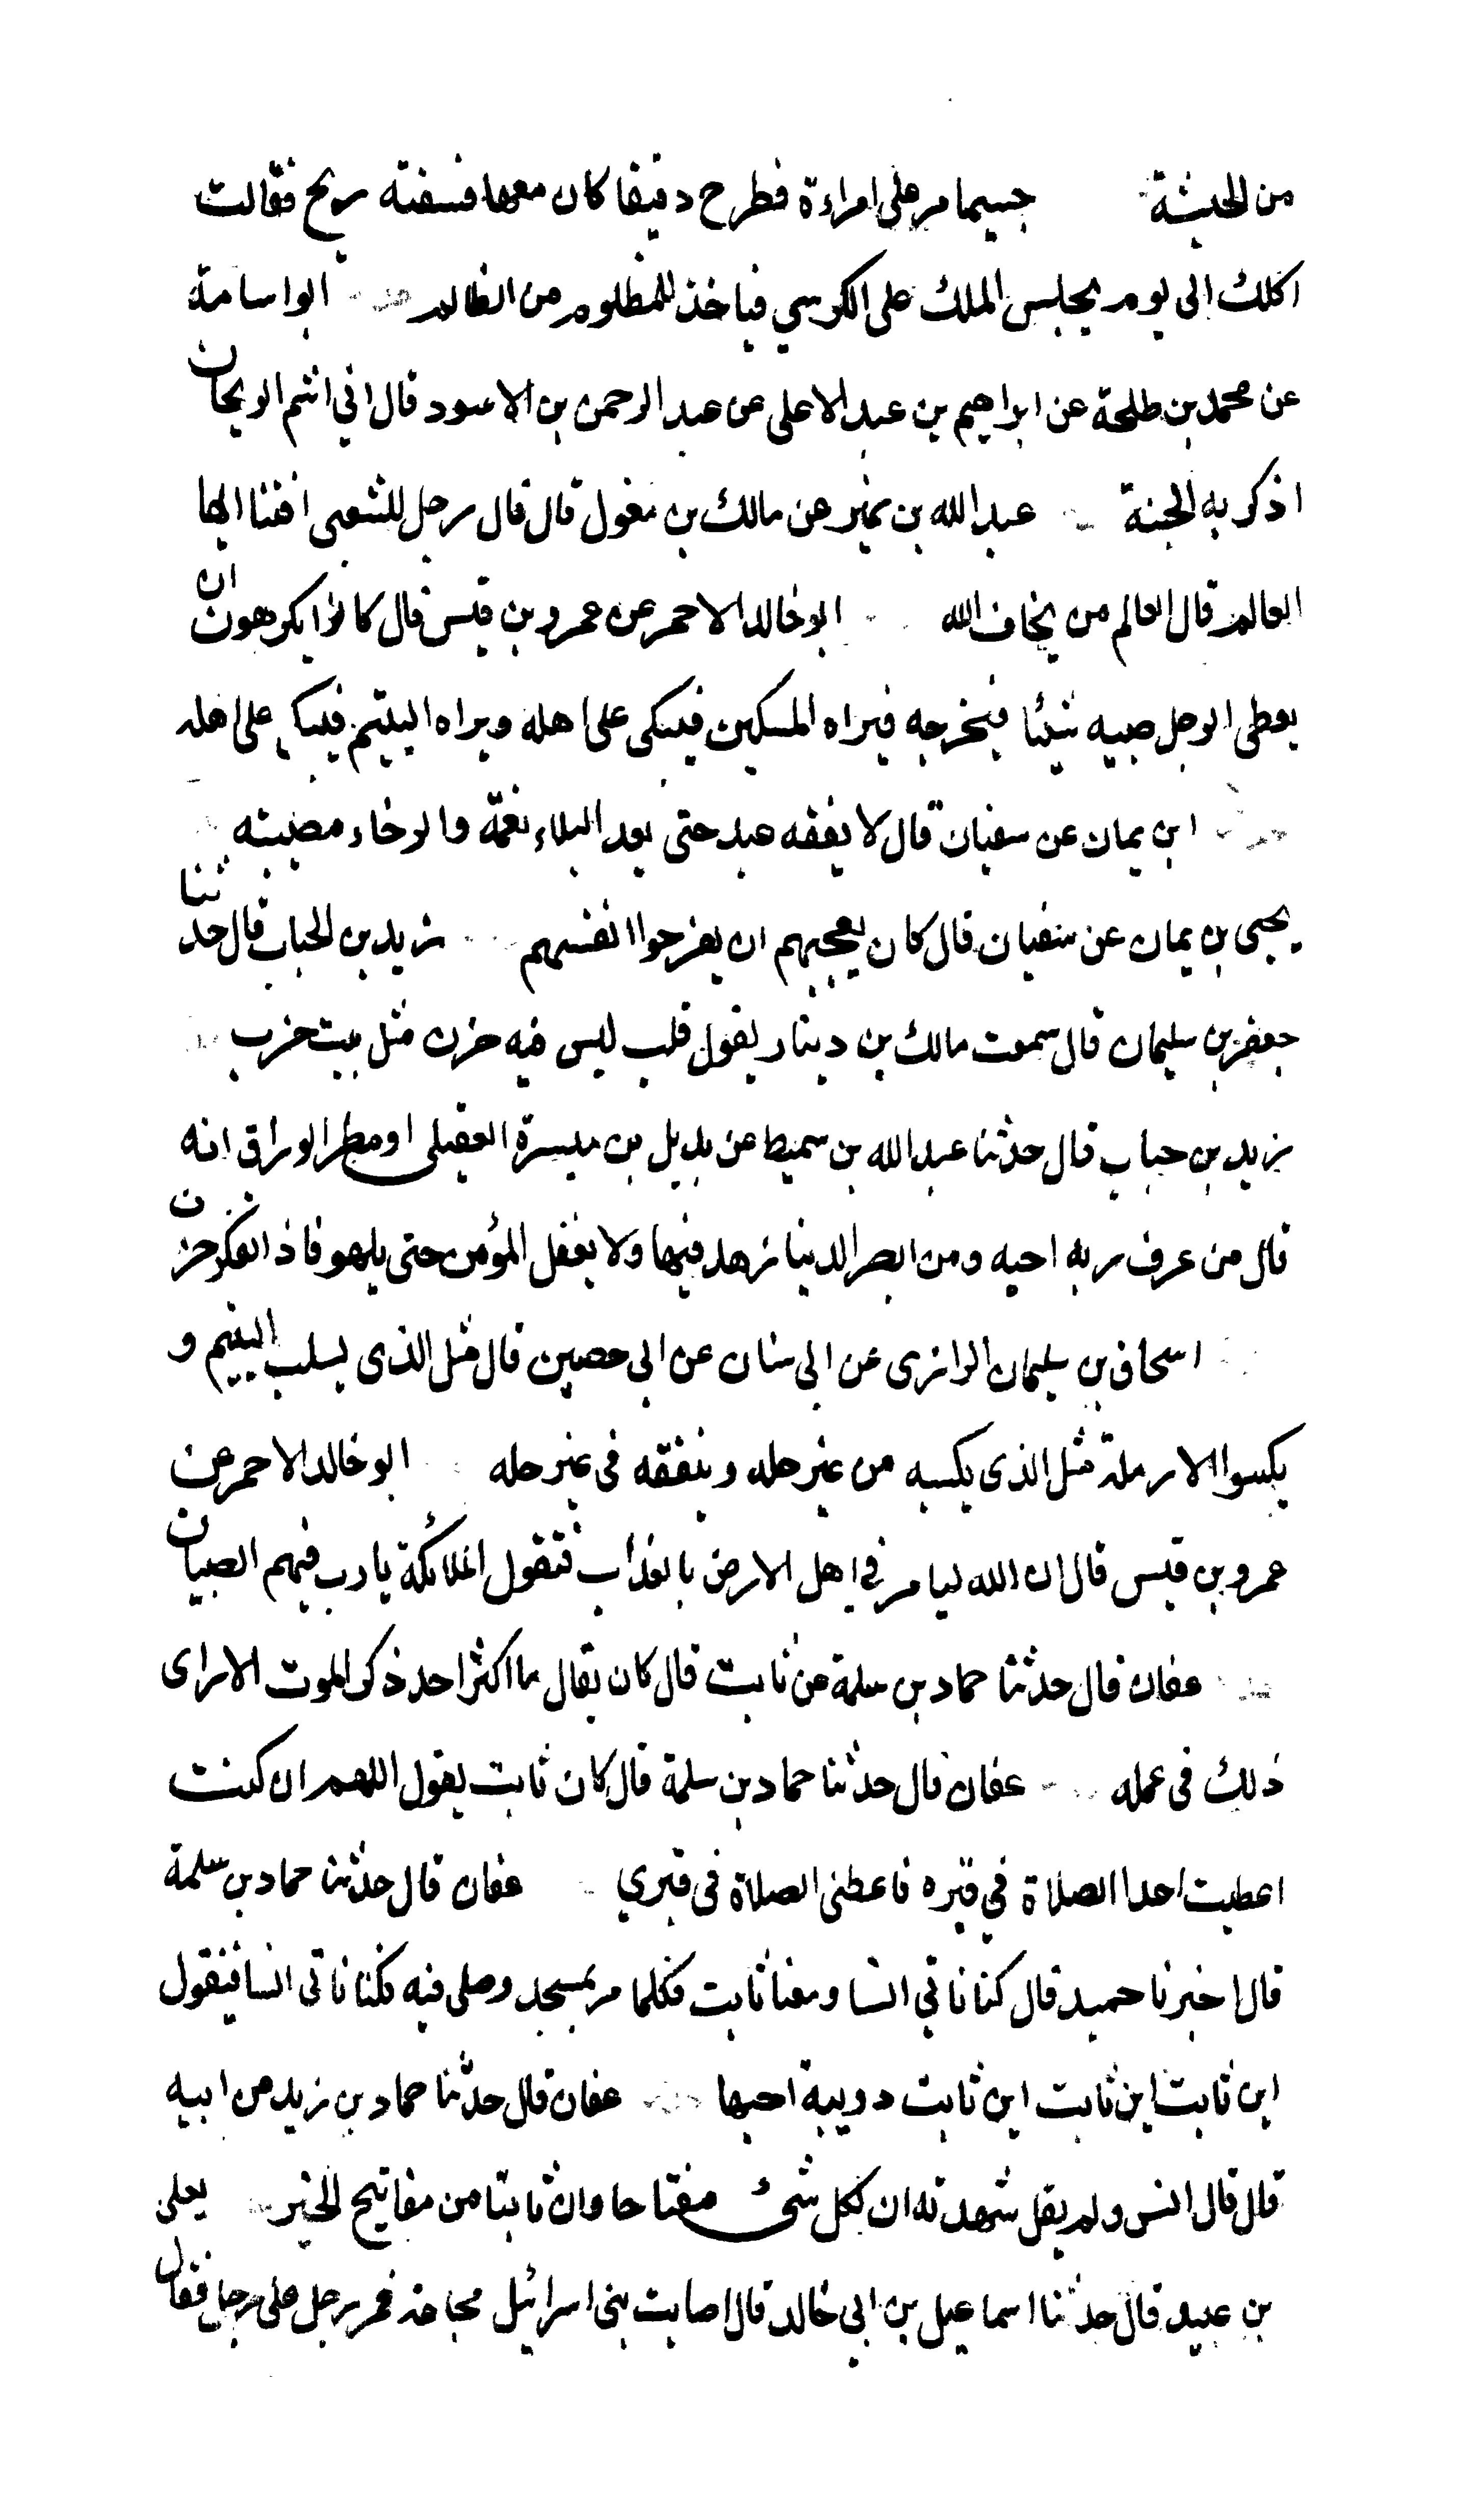 من الحبشة جسيما مر على امراءة فطرح دقيقا كان معها فسفته ريح فقالت
اكلك الى يوم يجلس الملك على الكرسي فياخذ للمظلوم من الظالم ابو اسامة
عن محمد بن طلحة عن ابراهيم بن عبد الاعلى عن عبد الرحمن بن الاسود قال اني اشم الريحان
اذكر به الجنة عبد الله بن نمير عن مالك بن مغول قال قال رجل للشعبي افتنا ايها
العالم قال العالم من يخاف الله ابو خالد الاحمر عن عمرو بن قيس قال كانوا يكرهون ان
يعطى الرجل صبيه شيئا فيخرجه فيراه المسكين فيبكى على اهله ويراه اليتيم فيبكي على اهله
ابن يمان عن سفيان قال لا يفقه عبد حتى يعد البلاء نعمة والرخاء مصيبته
يحيى بن يمان عن سفيان قال كان يعجبهم ان يفرحوا انفسهم زيد بن الحباب قال حدثنا
جعفر بن سليمان قال سمعت مالك بن دينار يقول قلب ليس فيه حزن مثل بيت خرب
زيد بن حباب قال حدثنا عبد الله بن سميط عن بديل بن ميسرة العقيلي او مطر الوراق انه
قال من عرف ربه احبه ومن ابصر الدنيا زهد فيها ولا يغفل المؤمن حتى يلهو فاذا تفكر حزن
اسحاق بن سليمان الرازى عن ابى سنان عن ابى حصين قال مثل الذى يسلب اليتيم و
يكسوا الارملة مثل الذى يكسبه من غير حله وينفقه فى غير حله ابو خالد الاحمر عن
عمرو بن قيس قال ان الله ليامر في اهل الارض بالعذاب فتقول الملائكة يا رب فيهم الصبيان
عفان قال حدثنا حماد بن سلمة عن ثابت قال كان يقال ما اكثر احد ذكر الموت الا راى
ذلك فى عمله عفان قال حدثنا حماد بن سلمة قال كان ثابت يقول اللهم ان كنت
اعطيت احدا الصلاة في قبره فاعطنى الصلاة فى قبري عفان قال حدثنا حماد بن سلمة
قال اخبرنا حميد قال كنا ناتي انسا ومعنا ثابت فكلما مر بمسجد وصلى فيه فكنا ناتى انسا فيقول
اين ثابت اين ثابت اين ثابت دويبة احبها عفان قال حدثنا حماد بن زيد عن ابيه
قال قال انس ولم يقل شهدته ان لكل شئ مفتاحا وان ثابتا من مفاتيح الخير يعلى
بن عبيد قال حدثنا اسماعيل بن ابى خالد قال اصابت بنى اسرائيل مجاعة فمر رجل على رجل فقال